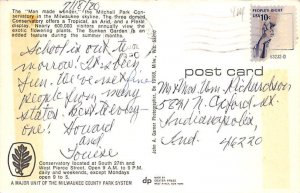 The "Man made winter," the Mitchell Park Con-
servatory in the Milwaukee skyline. The three domed,
Conservatory offers a Tropical, an Arid, and a Floral
display. Nearly 600,000 visitors annually view the
exotic flowering plants. The Sunken Garden is an
feature during the summer months.
School is out To
morrow. It's been
fun. We've met fine
people from many
states. Best to every-
one! Howard
and
Louise
Conservatory located at South 27th and
West Pierce Street. Open 9 A.M. to 5 P.M.
daily and weekends, except Monday. Open
A MAJOR UNIT OF THE MILWAUKEE COUNTY PARK SYSTEM
PEOPLE'S RIGHT
USA 10c
post card
Mr & Mrs Wm Richardson
5891 N. Oxford St.
Indianapolis,
Ind.
46220
dp
DEXTER PRESS
WEST NYACK, NEW YORK